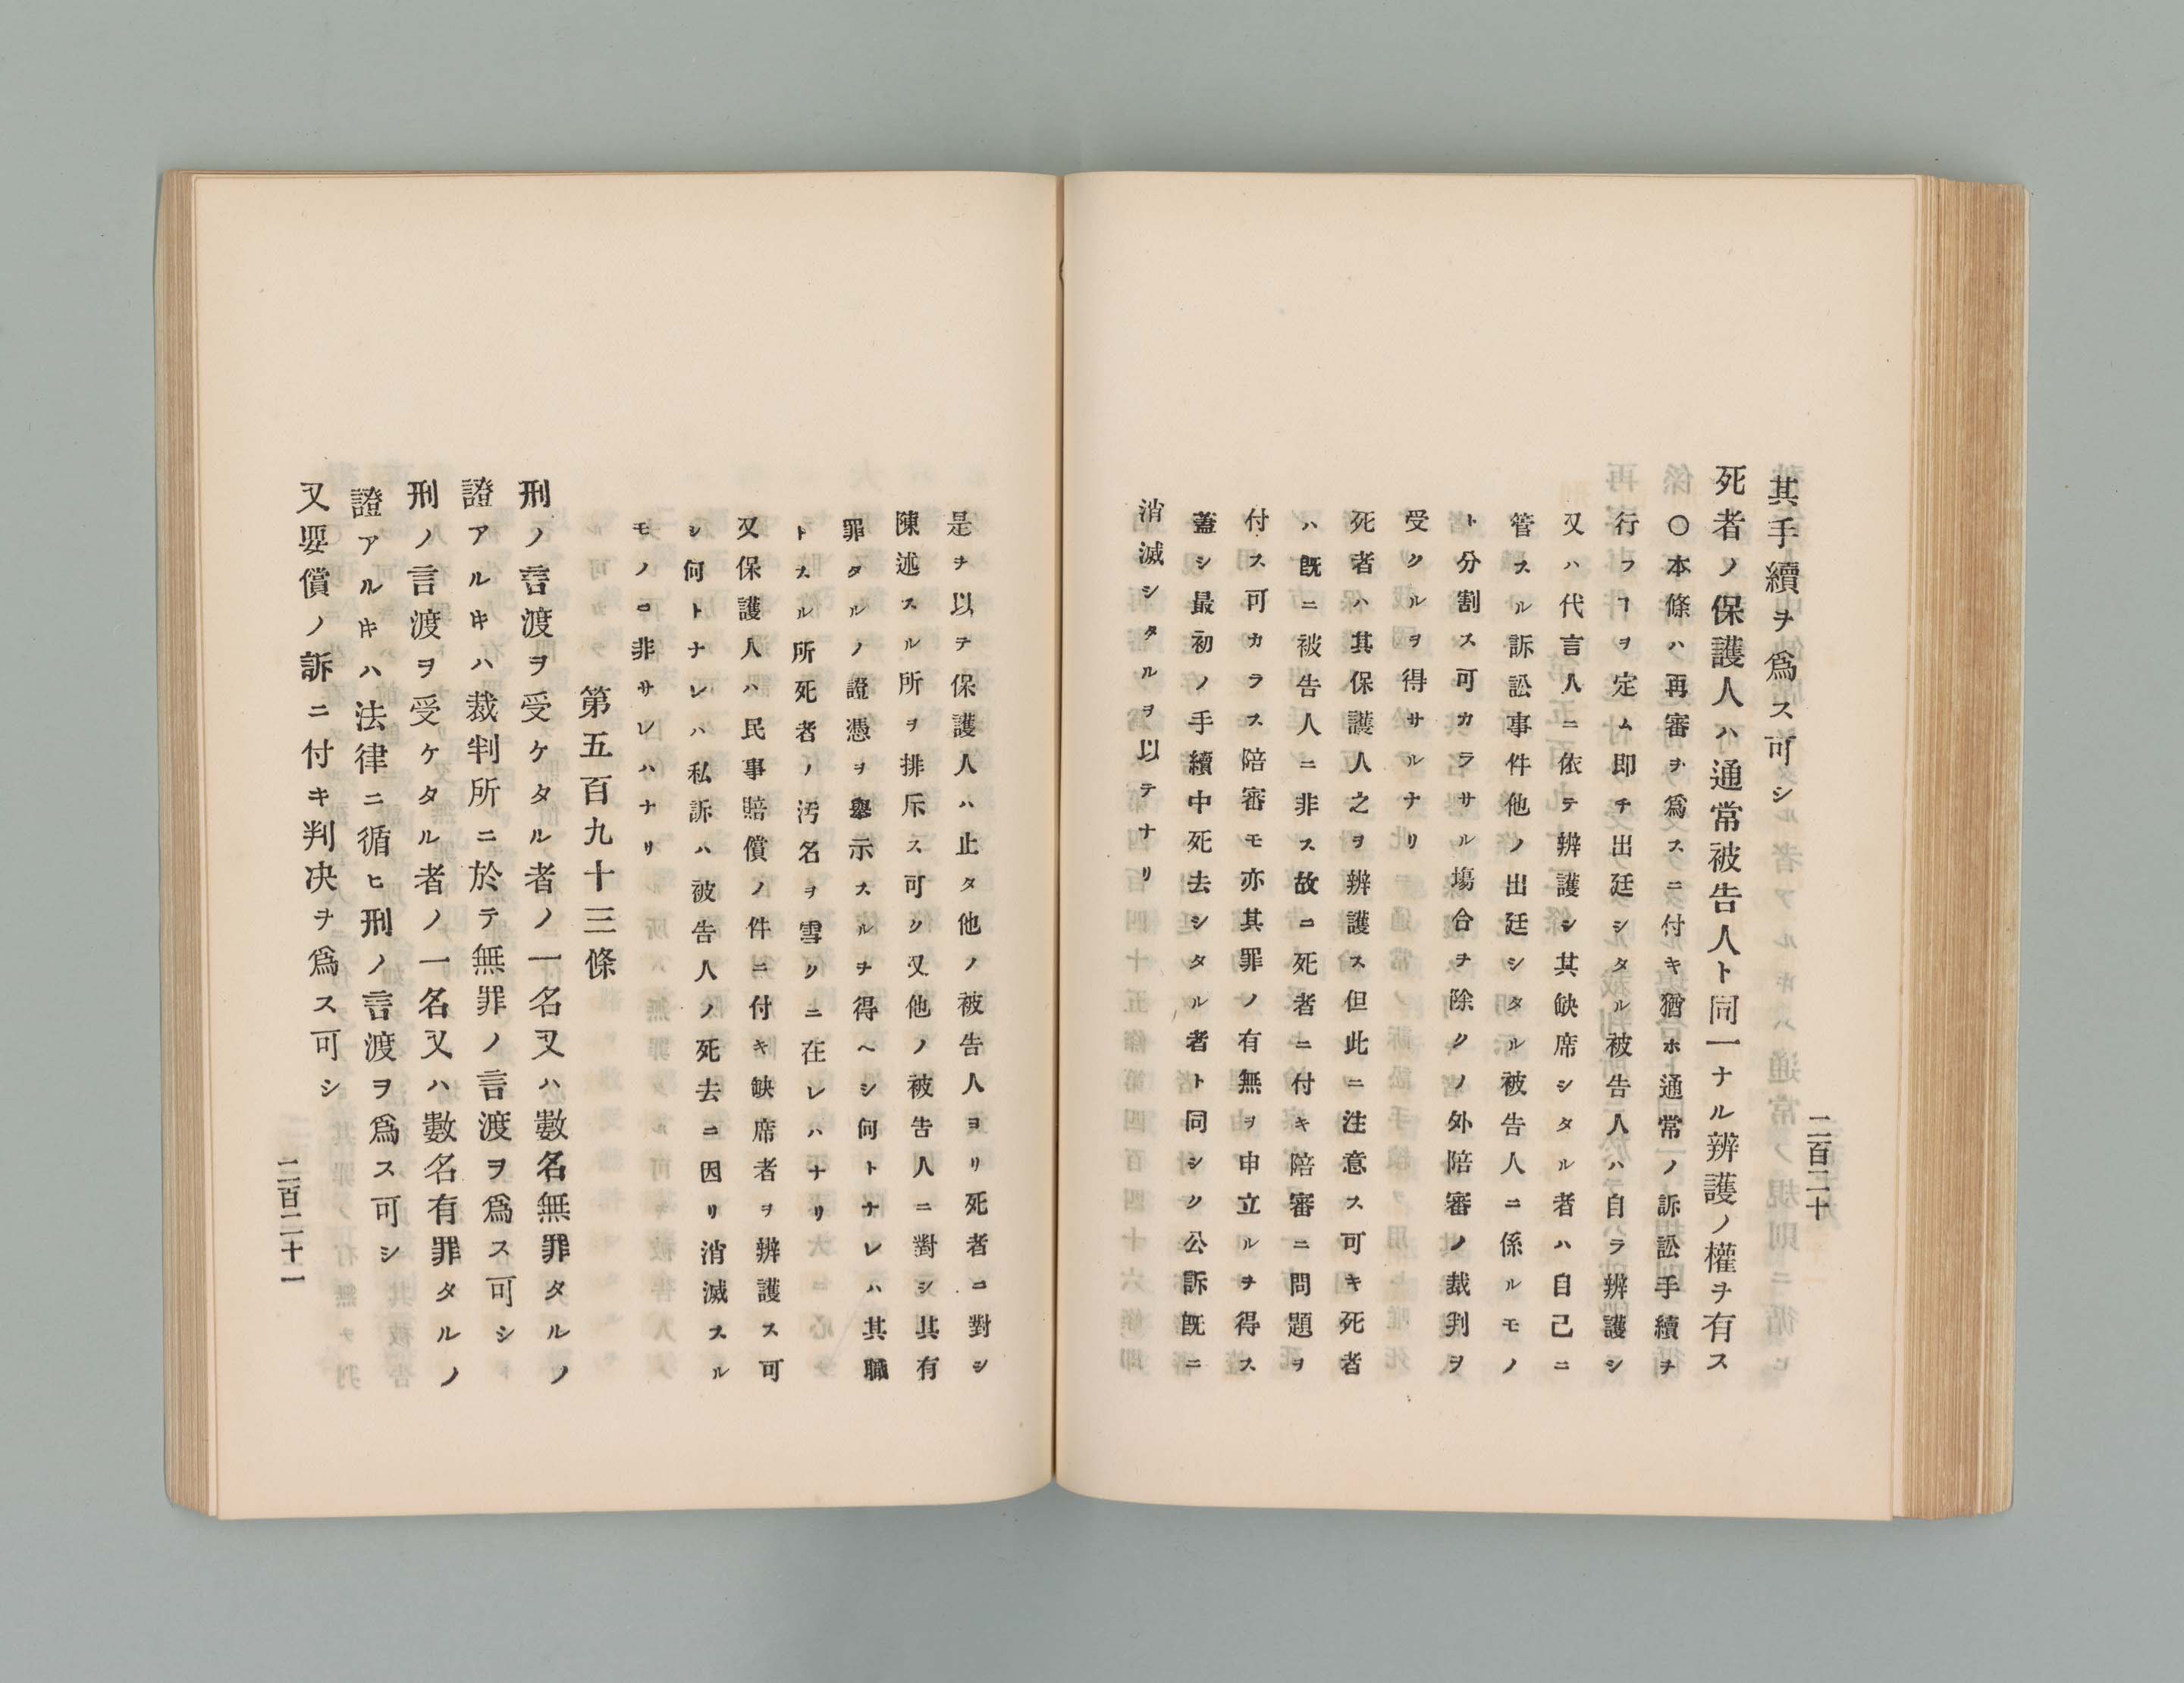 二百二十
其手續ヲ爲ス可シ
死者ノ保護人ハ通常被告人ト同一ナル辨護ノ權ヲ有ス
〇本條ハ再審ヲ爲スニ付キ猶ホ通常ノ訴訟手續ヲ
行フヿヲ定ム即チ出廷シタル被告人ハ自ラ辨護シ
又ハ代言人ニ依テ辨護シ其缺席シタル者ハ自己ニ
管スル訴訟事件他ノ出廷シタル被告人ニ係ルモノ
ト分割ス可カラサル塲合ヲ除クノ外陪審ノ裁判ヲ
受クルヲ得サルナリ
死者ハ其保護人之ヲ辨護ス但此ニ注意ス可キ死者
ハ既ニ被告人ニ非ス故ニ死者ニ付キ陪審ニ問題ヲ
付ス可カラス陪審モ亦其罪ノ有無ヲ申立ルヲ得ス
蓋シ最初ノ手續中死去シタル者ト同シク公訴既ニ
消滅シタルヲ以テナリ
是ヲ以テ保護人ハ止タ他ノ被告人ヨリ死者ニ對シ
陳述スル所ヲ排斥ス可ク又他ノ被告人ニ對シ其有
罪タルノ證憑ヲ擧示スルヲ得ヘシ何トナレハ其職
トスル所死者ノ汚名ヲ雪クニ在レハナリ
又保護人ハ民事賠償ノ件ニ付キ缺席者ヲ辨護ス可
シ何トナレハ私訴ハ被告人ノ死去ニ因リ消滅スル
モノニ非サレハナリ
第五百九十三條
刑ノ言渡ヲ受ケタル者ノ一名又ハ數名無罪タルノ
證アルキハ裁判所ニ於テ無罪ノ言渡ヲ爲ス可シ
刑ノ言渡ヲ受ケタル者ノ一名又ハ數名有罪タルノ
證アルキハ法律ニ循ヒ刑ノ言渡ヲ爲ス可シ
又要償ノ訴ニ付キ判决ヲ爲ス可シ
二百二十一